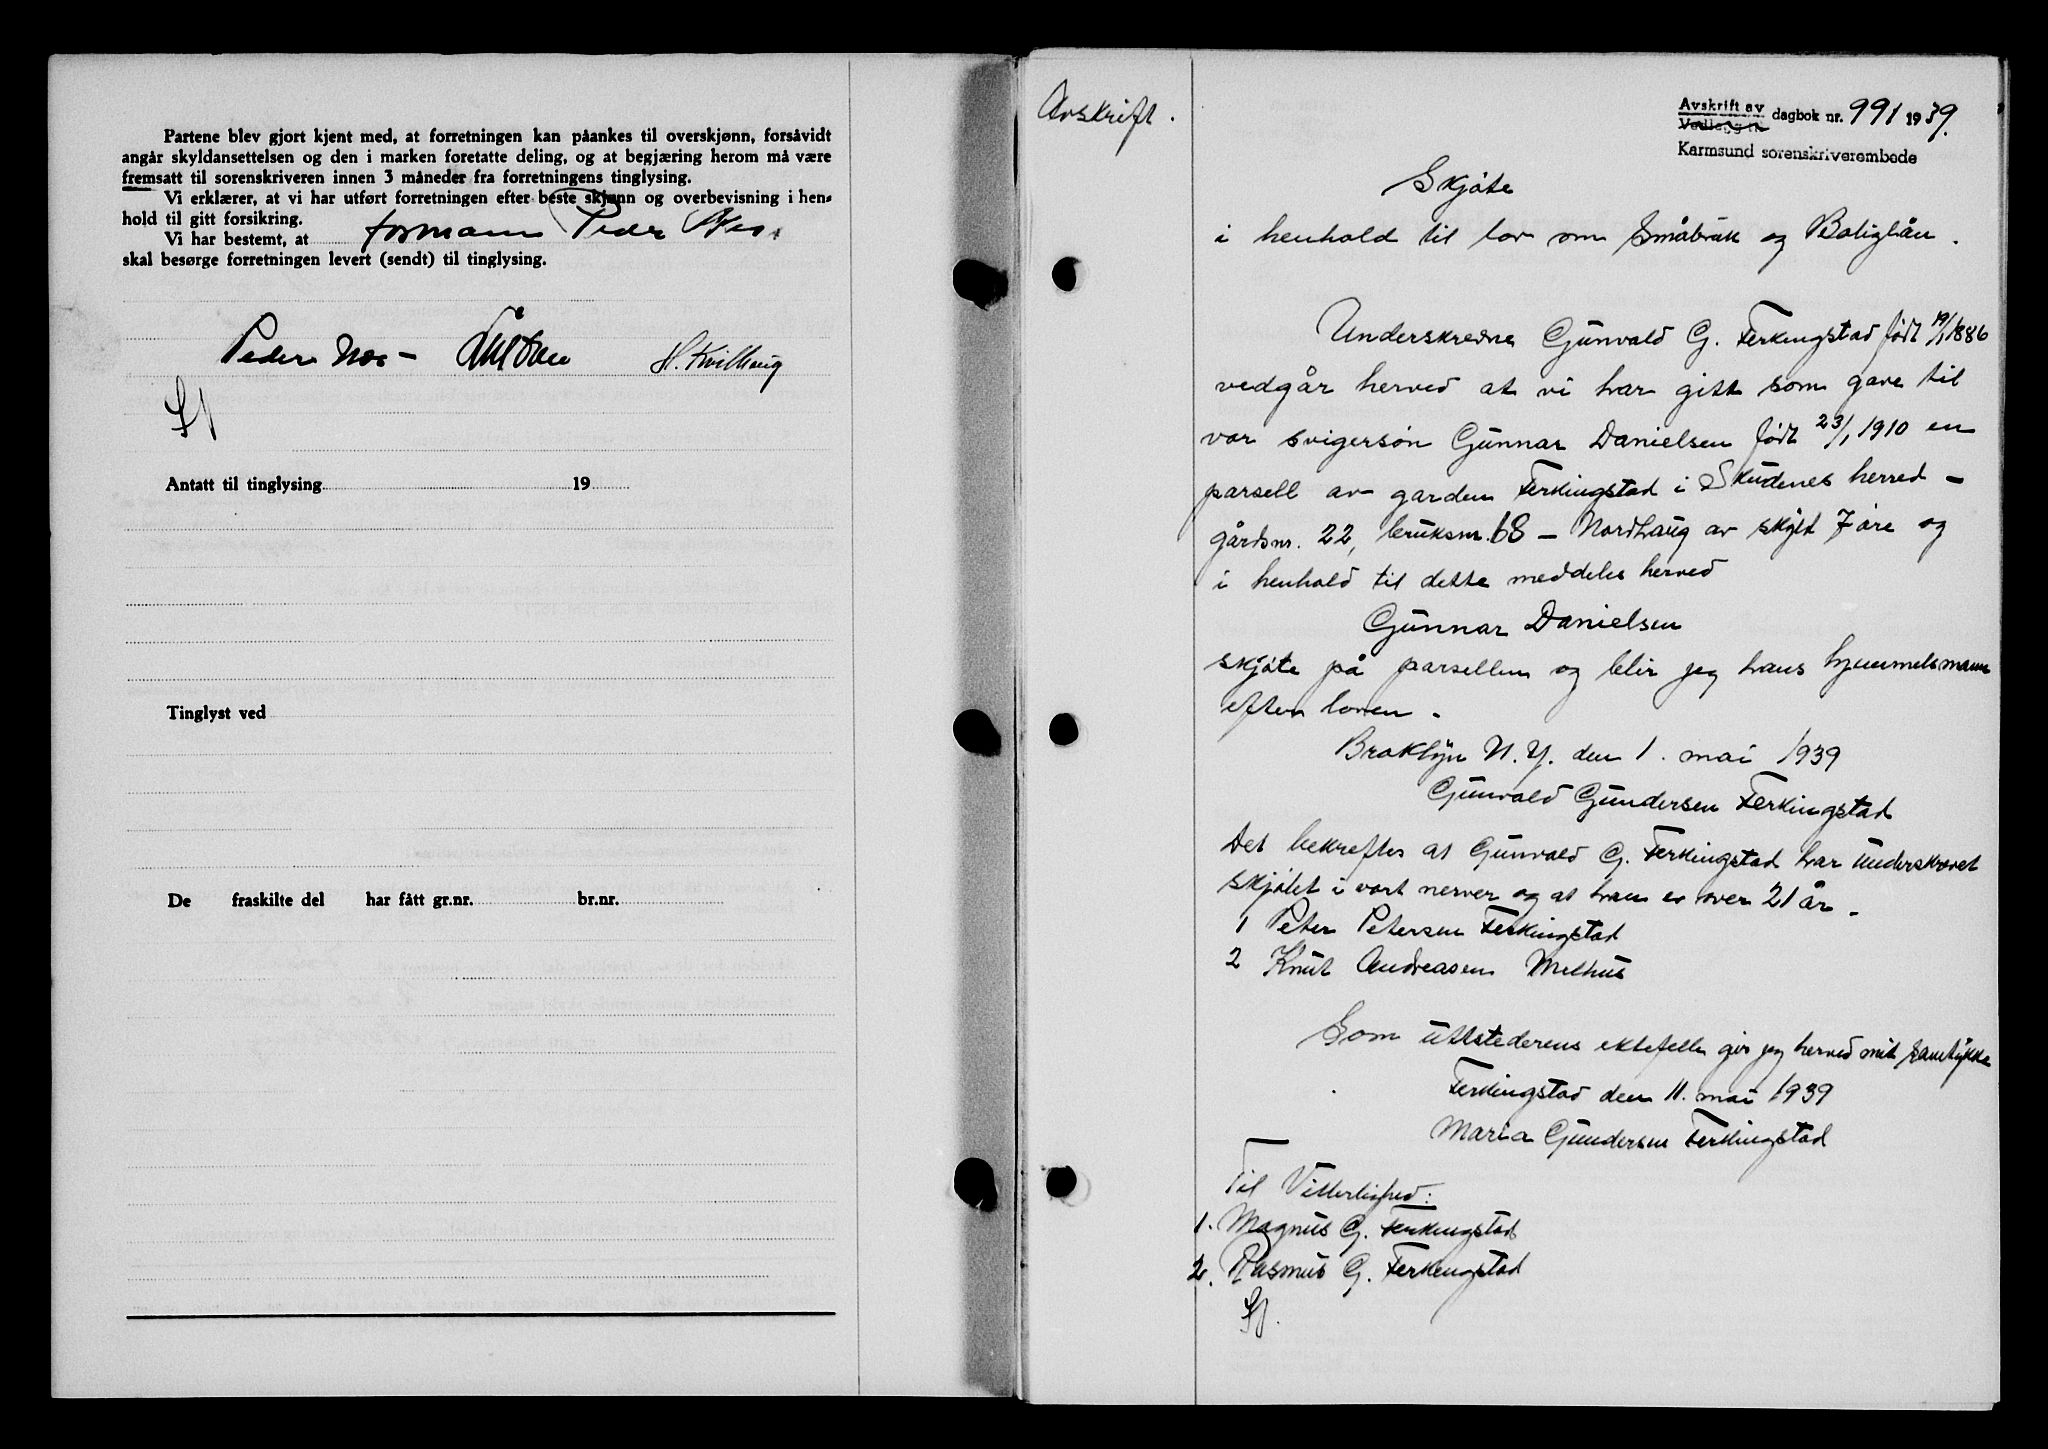 Partene blev gjort kjent med, at forretningen kan påankes til overskjønn, forsåvidt
angår skyldansettelsen og den i marken foretatte deling, og at begjæring herom må være
fremsatt til sorenskriveren innen 3 måneder fra forretningens tinglysing.
Vi erklærer, at vi har utført forretningen efter beste skjønn og overbevisning i hen-
hold til gitt forsikring.
Vi har bestemt, at formann Peder Næs.
skal besørge forretningen levert (sendt) til tinglysing.
Peder Næs - H. Kvilhaug
Antatt til tinglysing 19
Tinglyst ved
De fraskilte del har fått gr.nr. br.nr.
Avskrift.
Avskrift av
Vedlegg til dagbok nr. 991 1939.
Karmsund sorenskriverembede
Skjøte
i henhold til lov om Småbruk og Boliglån.
Underskrevne Gunvald G. Ferkingstad født 19/1 1886
vedgår herved at vi har gitt som gave til
vor svigersøn Gunnar Danielsen født 23/1 1910 en
parsell av garden Ferkingstad i Skudenes herred -
gårdsnr. 22, bruksnr. 68 - Nordhaug av skyld 7 øre og
i henhold til dette meddeles herved
Gunnar Danielsen
skjøte på parsellen og blir jeg hans hjemmelsmann
efter loven.
Broklyn N. Y. den 1. mai 1939
Gunvald Gundersen Ferkingstad
Det bekreftes at Gunvald G. Ferkingstad har underskrevet
skjøtet i vort nerver og at han er over 21 år.
1 Peter Petersen Ferkingstad
2 Knut Andreasen Melhus
Som utstederens ektefelle gir jeg herved mit samtykke
Ferkingstad den 11. mai 1939
Maria Gundersen Ferkingstad
Til Vitterlighed:
1. Magnus G. Ferkingstad
2. Rasmus G. Ferkingstad